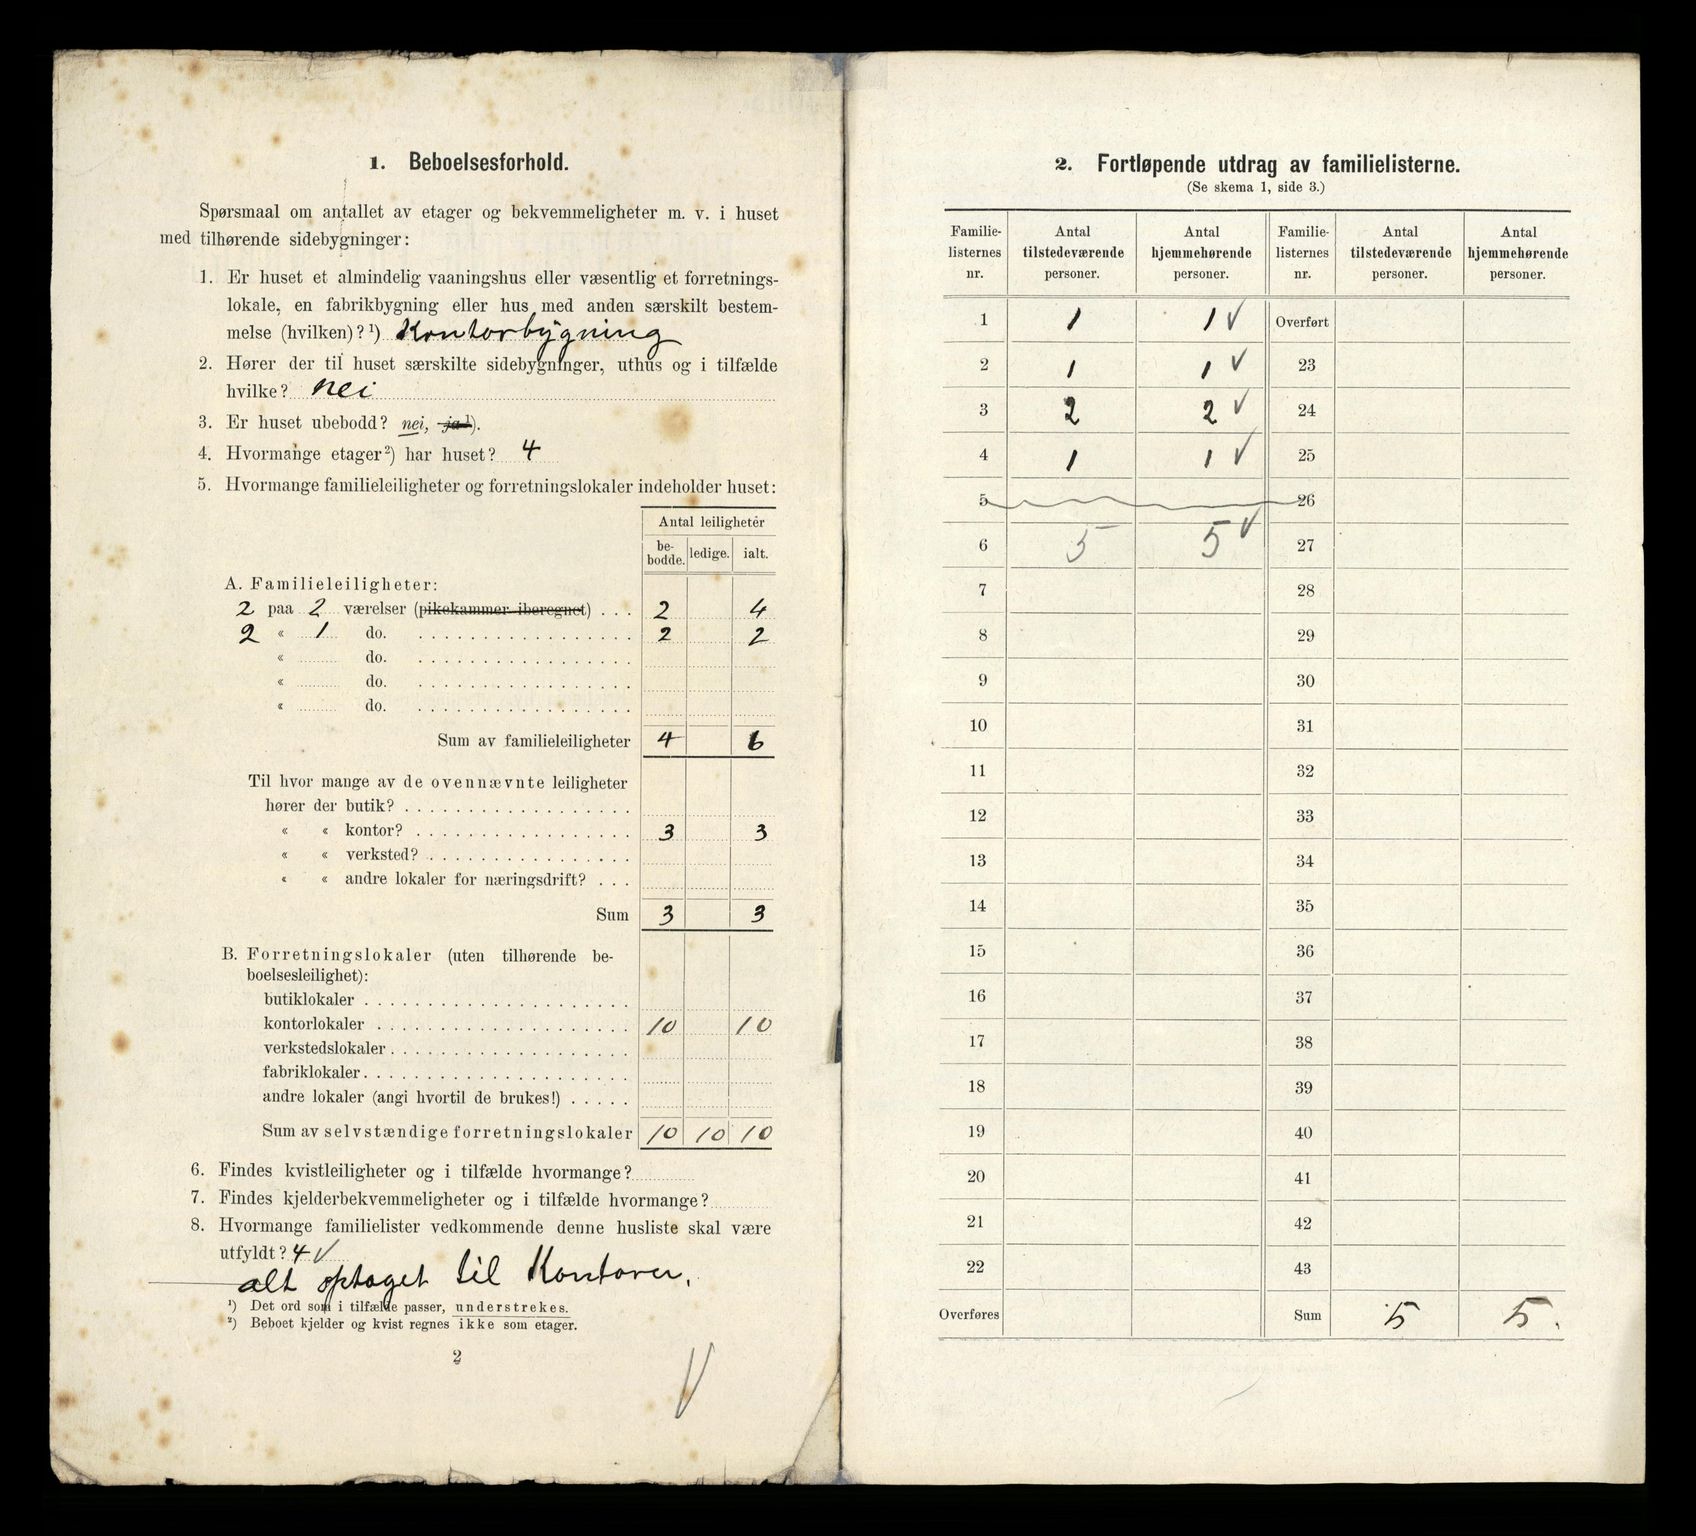 1. Beboelsesforhold.
Spørsmaal om antallet av etager og bekvemmeligheter m. v. i huset
med tilhørende sidebygninger:
1. Er huset et almindelig vaaningshus eller væsentlig et forretnings-
lokale, en fabrikbygning eller hus med anden særskilt bestem-
melse (hvilken)?¹) Kontorbygning
2. Hører der til huset særskilte sidebygninger, uthus og i tilfælde
hvilke? nei
3. Er huset ubebodd? nei, ja¹).
4. Hvormange etager²) har huset? 4
5. Hvormange familieleiligheter og forretningslokaler indeholder huset:
Antal leiligheter
be-bodde. ledige. ialt.
A. Familieleiligheter:
2 paa 2 værelser (pikekammer iberegnet) . . . 2 4
2 « 1 do. . . . 2 2
« do.
« do.
« do.
Sum av familieleiligheter 4 6
Til hvor mange av de ovennævnte leiligheter
hører der butik?
« « kontor? 3 3
« « verksted?
« « andre lokaler for næringsdrift?
Sum 3 3
B. Forretningslokaler (uten tilhørende be-
boelsesleilighet):
butiklokaler
kontorlokaler 10 10
verkstedslokaler
fabriklokaler
andre lokaler (angi hvortil de brukes!)
Sum av selvstændige forretningslokaler 10 10 10
6. Findes kvistleiligheter og i tilfælde hvormange?
7. Findes kjelderbekvemmeligheter og i tilfælde hvormange?
8. Hvormange familielister vedkommende denne husliste skal være
utfyldt? 4 V
alt optaget til Kontorer.
¹) Det ord som i tilfælde passer, understrekes.
²) Beboet kjelder og kvist regnes ikke som etager.
2
V
2. Fortløpende utdrag av familielisterne.
(Se skema 1, side 3.)
Familie-listernes nr. Antal tilstedeværende personer. Antal hjemmehørende personer. Familie-listernes nr. Antal tilstedeværende personer. Antal hjemmehørende personer.
1 1 1 V Overført
2 1 1 V 23
3 2 2 V 24
4 1 1 V 25
5 26
6 5 5 V 27
7 28
8 29
9 30
10 31
11 32
12 33
13 34
14 35
15 36
16 37
17 38
18 39
19 40
20 41
21 42
22 43
Overføres Sum 5 5.